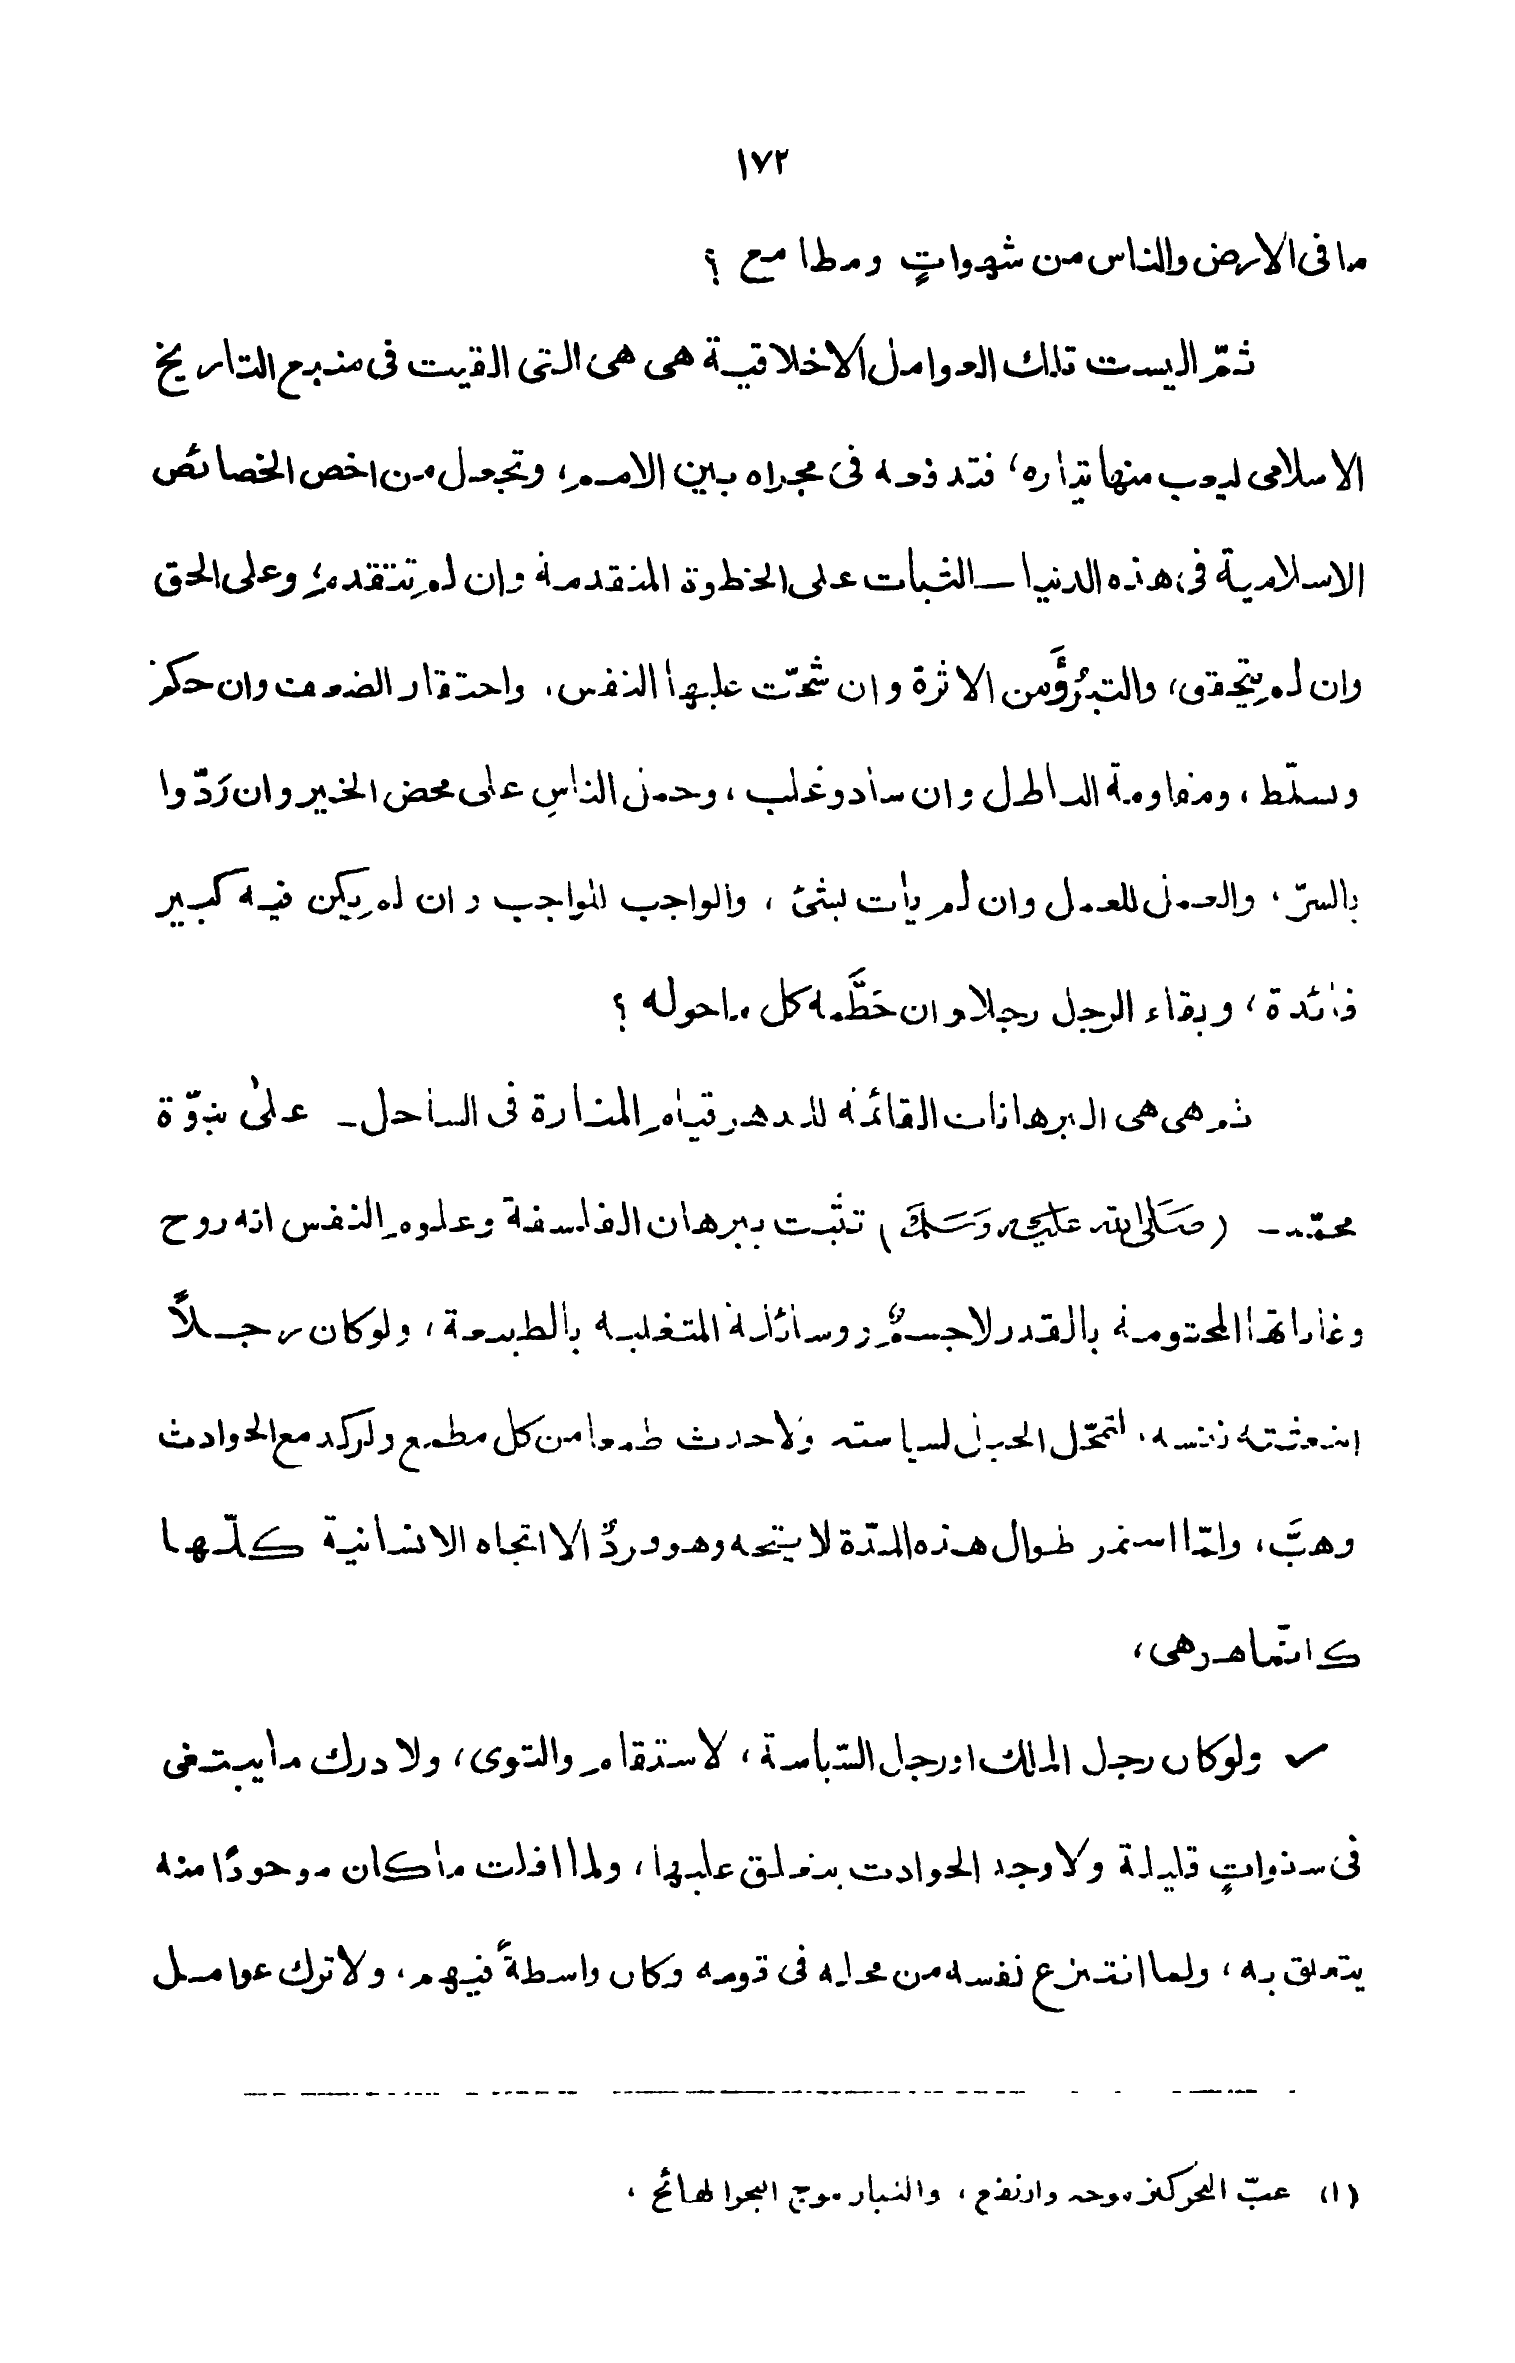 ١٧٢
ما فى الارض والناس من شهواتٍ ومطامع ؟
ثمّ اليست تلك العوامل الاخلاقية هى هى التى القيت فى منبع التاريخ
الاسلامى ليعب منها تياره، فتدفعه فى مجراه بين الامم، وتجعل من اخص الخصائص
الاسلامية فى هذه الدنيا ــ الثبات على الخطوة المتقدمة وان لم تتقدم، وعلى الحق
وان لم يتحقق، والتبرُّؤَ من الاثرة وان شحّت عليها النفس، واحتقار الضعف وان حكم
وسلّط، ومقاومة الباطل وان ساد وغلب، وحمل الناسِ على محض الخير وان رَدّوا
بالسرّ، والعمل للعمل وان لم يأت بشئ، والواجب للواجب وان لم يكن فيه كبير
فائدة، وبقاء الرجل رجلا وان حَطَّمه كل ماحوله ؟
ثم هى هى البرهانات القائمة للدهر قيام المنارة فى الساحل ـ على نبوّة
محمّد ـ (صلى الله عليه وسلم) تثبت ببرهان الفلسفة وعلوم النفس انه روح
وغاياتها المحتومة بالقدر لا جسمٌ ووسائله المتغلبه بالطبيعة، ولو كان رجلاً
ابتعثته نفسه، لتمحّل الحيل لسياسته ولاحدث طمعا من كل مطمع ولركد مع الحوادث
وهبَّ، ولمّا استمر طوال هذه المدّة لا يتجه وهو فردٌ الا اتجاه الانسانية كلّها
كانّما هو هى،
ولو كان رجل الملك او رجل السّياسة، لاستقام والتوى، ولادرك ما يبتغى
فى سنواتٍ قليلة ولاوجد الحوادث يتعلق عليها، ولما افلت ما كان موجودًا منه
يتعلق به، ولما انتزع نفسه من محله فى قومه وكان واسطةً فيهم، ولا ترك عوامل
(١) عبّ البحر كثر موجه وارتفع، والتيار موج البحر الهائج،